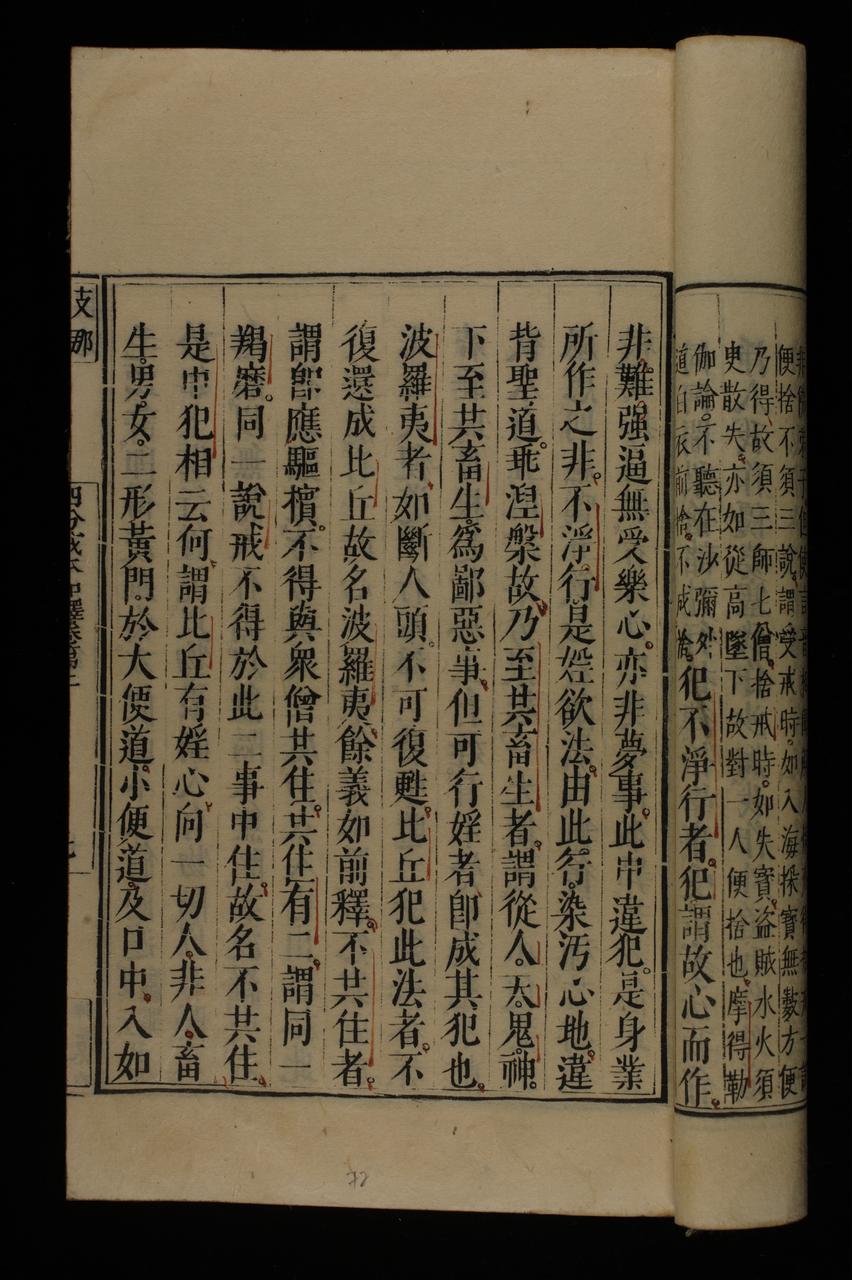 便捨不須三說謂受戒時如入海採寶無數方便
乃得故須三師七僧捨戒時如失寶盜賊水火須
臾散失亦如從高墜下故對一人便捨也摩得勒
伽論不聽在沙彌外
道白衣前捨不成捨犯不淨行者犯謂故心而作
非難強逼無受樂心亦非夢事此中違犯是身業
所作之非不淨行是婬欲法由此行染汚心地違
背聖道乖涅槃故乃至共畜生者謂從人天鬼神
下至共畜生為鄙惡事但可行婬者即成其犯也
波羅夷者如斷人頭不可復甦比丘犯此法者不
復還成比丘故名波羅夷餘義如前釋不共住者
謂即應驅擯不得與眾僧共住共住有二謂同一
羯磨同一說戒不得於此二事中住故名不共住
是中犯相云何謂比丘有婬心向一切人非人畜
生男女二形黃門於大便道小便道及口中入如
支那